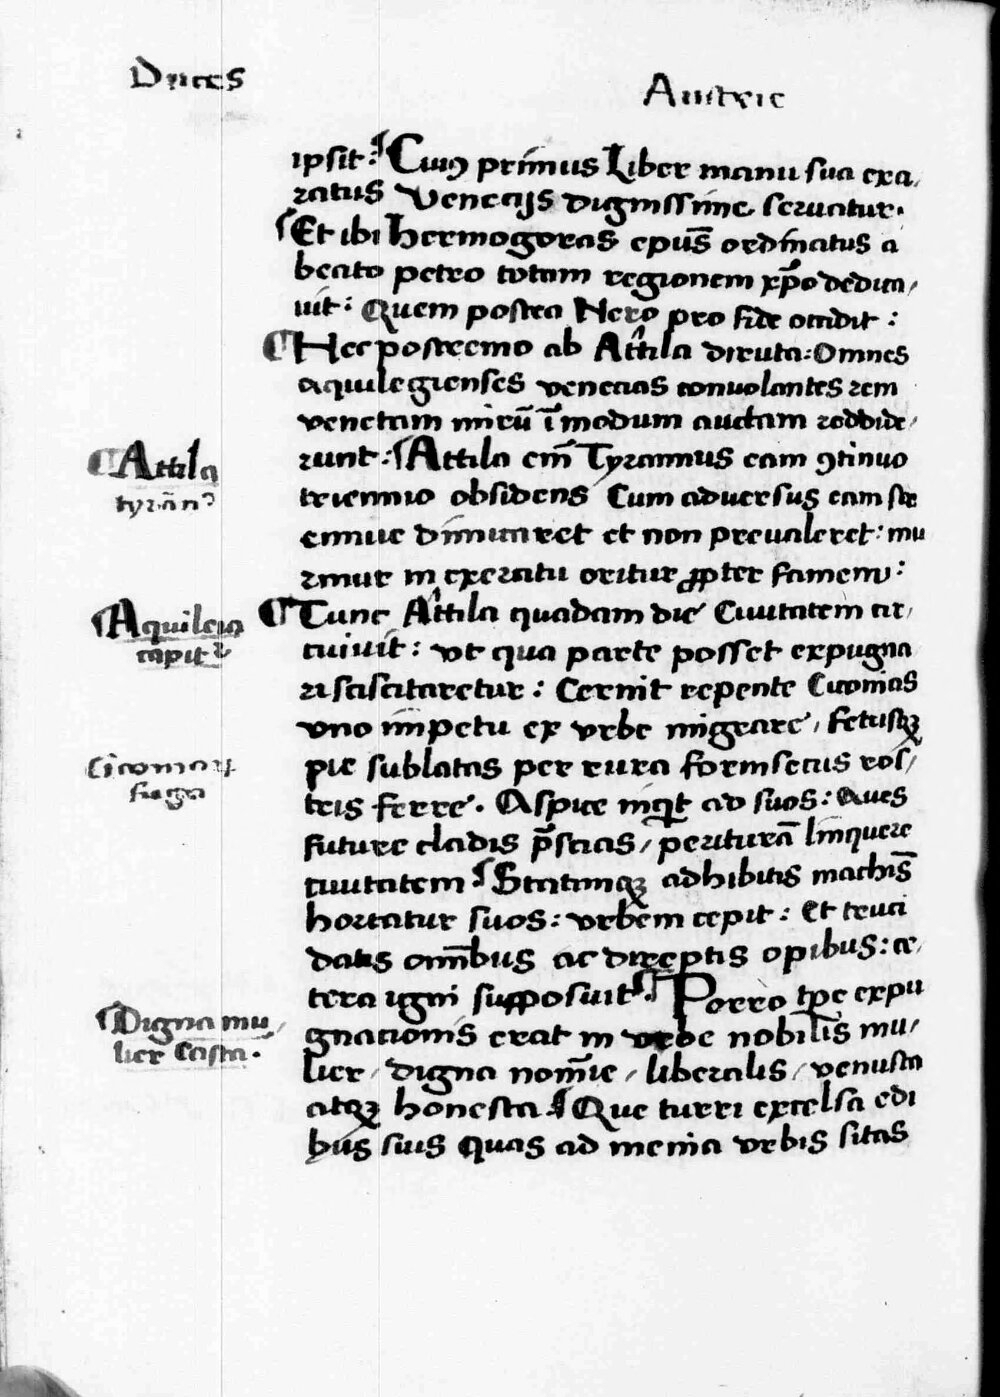 Duces
Austrie
ipsit: Cuiꝰ primus Liber manu sua exa,
ratus Venecijs dignissime seruatur.
Et ibi Hermogoras epūs ordinatus a
beato petro totam regionem xp̄o dedica,
uit: Quem postea Nero pro fide occidit:
Hec postremo ab Attila diruta: Omnes
aquilegienses venecias conuolantes rem
venetam mirū ī modum auctam reddide,
runt: Attila em̄ Tyrannus eam ꝯtinuo
triennio obsidens Cum aduersus eam stre
ennue dimicaret et non preualeret: mu
rmur in exercitu oritur ꝓpter famem:
Tunc Attila quadam die Ciuitatem cir,
cuiuit: vt qua parte posset expugna
ri sciscitaretur: Cernit repente Ciconias
vno impetu ex vrbe migrare, fetusqꝫ
pie sublatas per rura forinsecus ros,
tris ferre. Aspice inqͥt ad suos: Aues
future cladis p̄scias, periturā linquere
ciuitatem Statimqꝫ adhibitis machīs
hortatur suos: vrbem cepit: Et truci
datis om̄ibus ac direptis opibus: ce,
tera igni supposuit. Porro tp̄e expu
gnacionis erat in vrbe nobilis mu,
lier, digna nom̄ie, liberalis, venusta
atqꝫ honesta Que turri excelsa edi
bus suis Quas ad menia vrbis sitas
Attila
tyrānꝰ
Aquileia
capitᷣ
Ciconiaꝝ
fuga
Digna mu,
lier Casta.